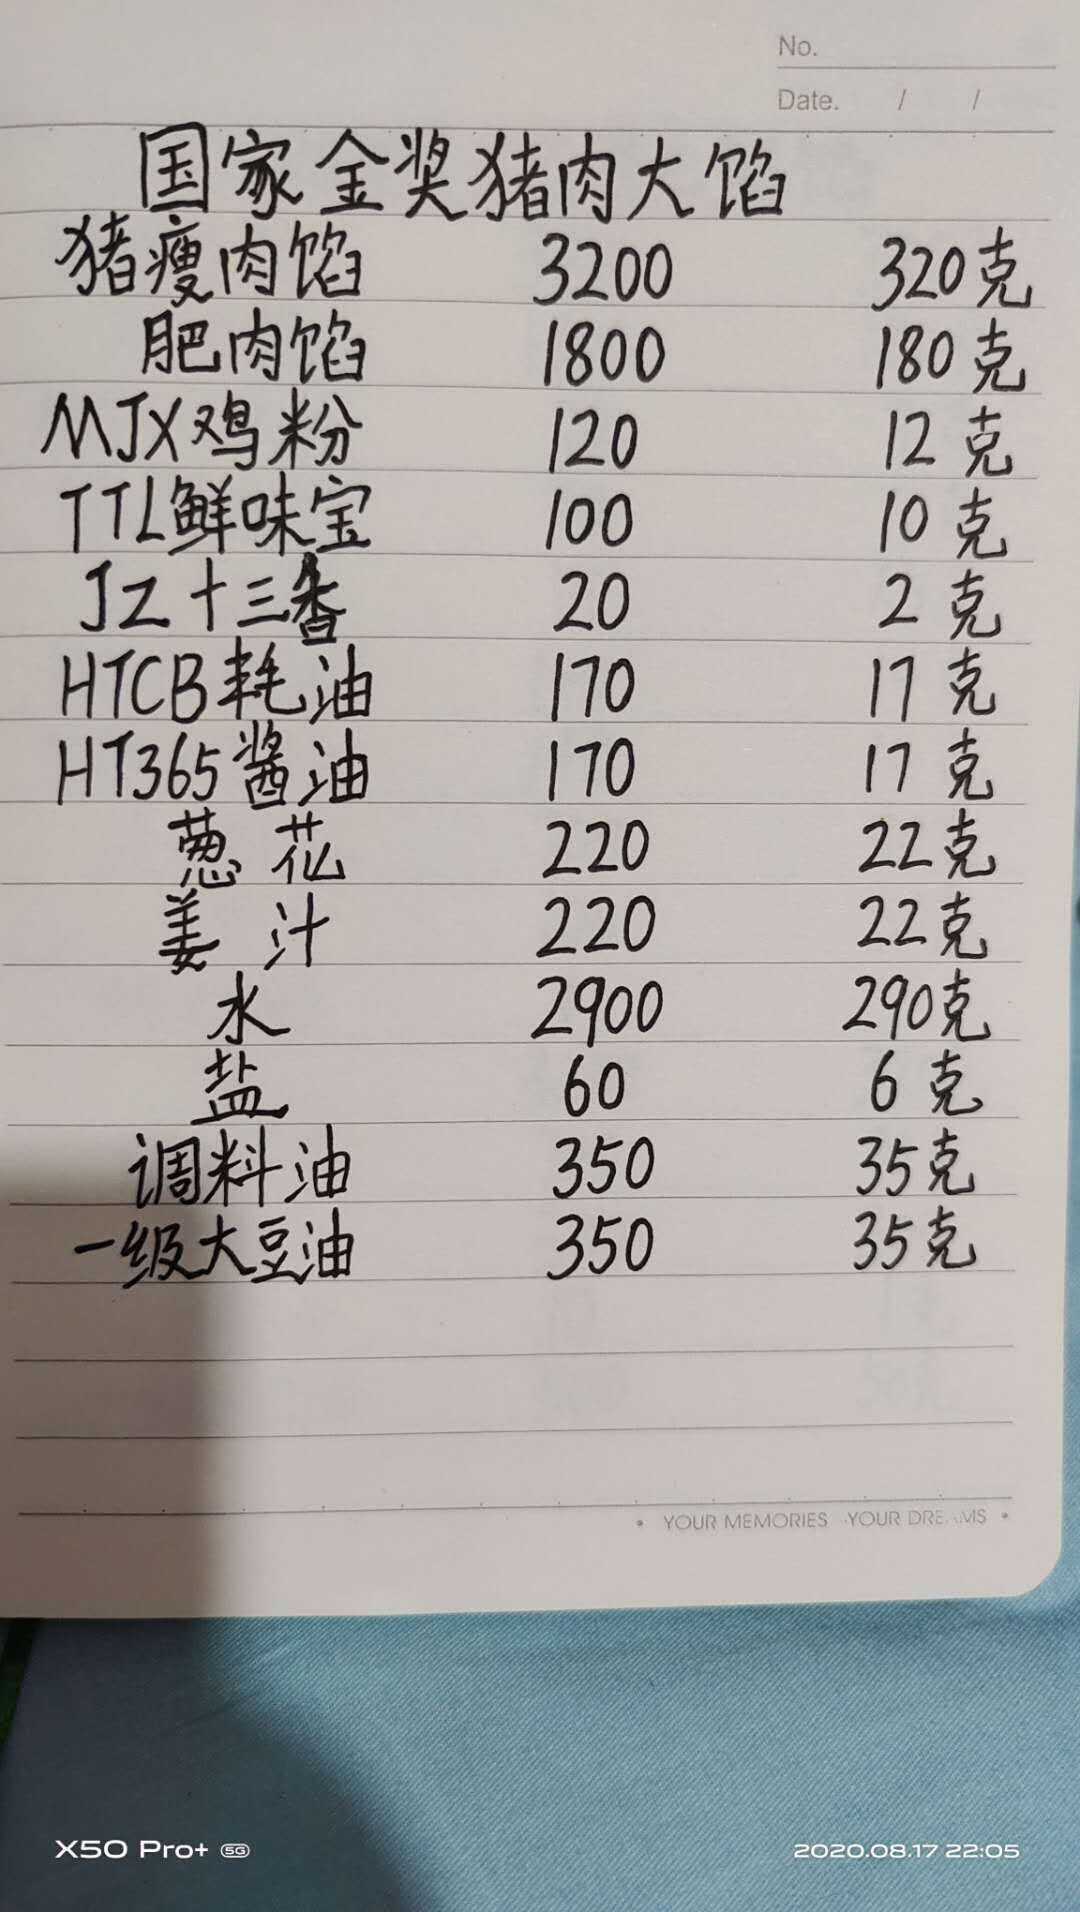 No.
Date. / /
国家金奖猪肉大馅
猪瘦肉馅 3200 320克
肥肉馅 1800 180克
MJX鸡粉 120 12克
TTL鲜味宝 100 10克
JZ十三香 20 2克
HTCB耗油 170 17克
HT365酱油 170 17克
葱花 220 22克
姜汁 220 22克
水 2900 290克
盐 60 6克
调料油 350 35克
一级大豆油 350 35克
• YOUR MEMORIES ·YOUR DREAMS •
X50 Pro+ 5G 2020.08.17 22:05